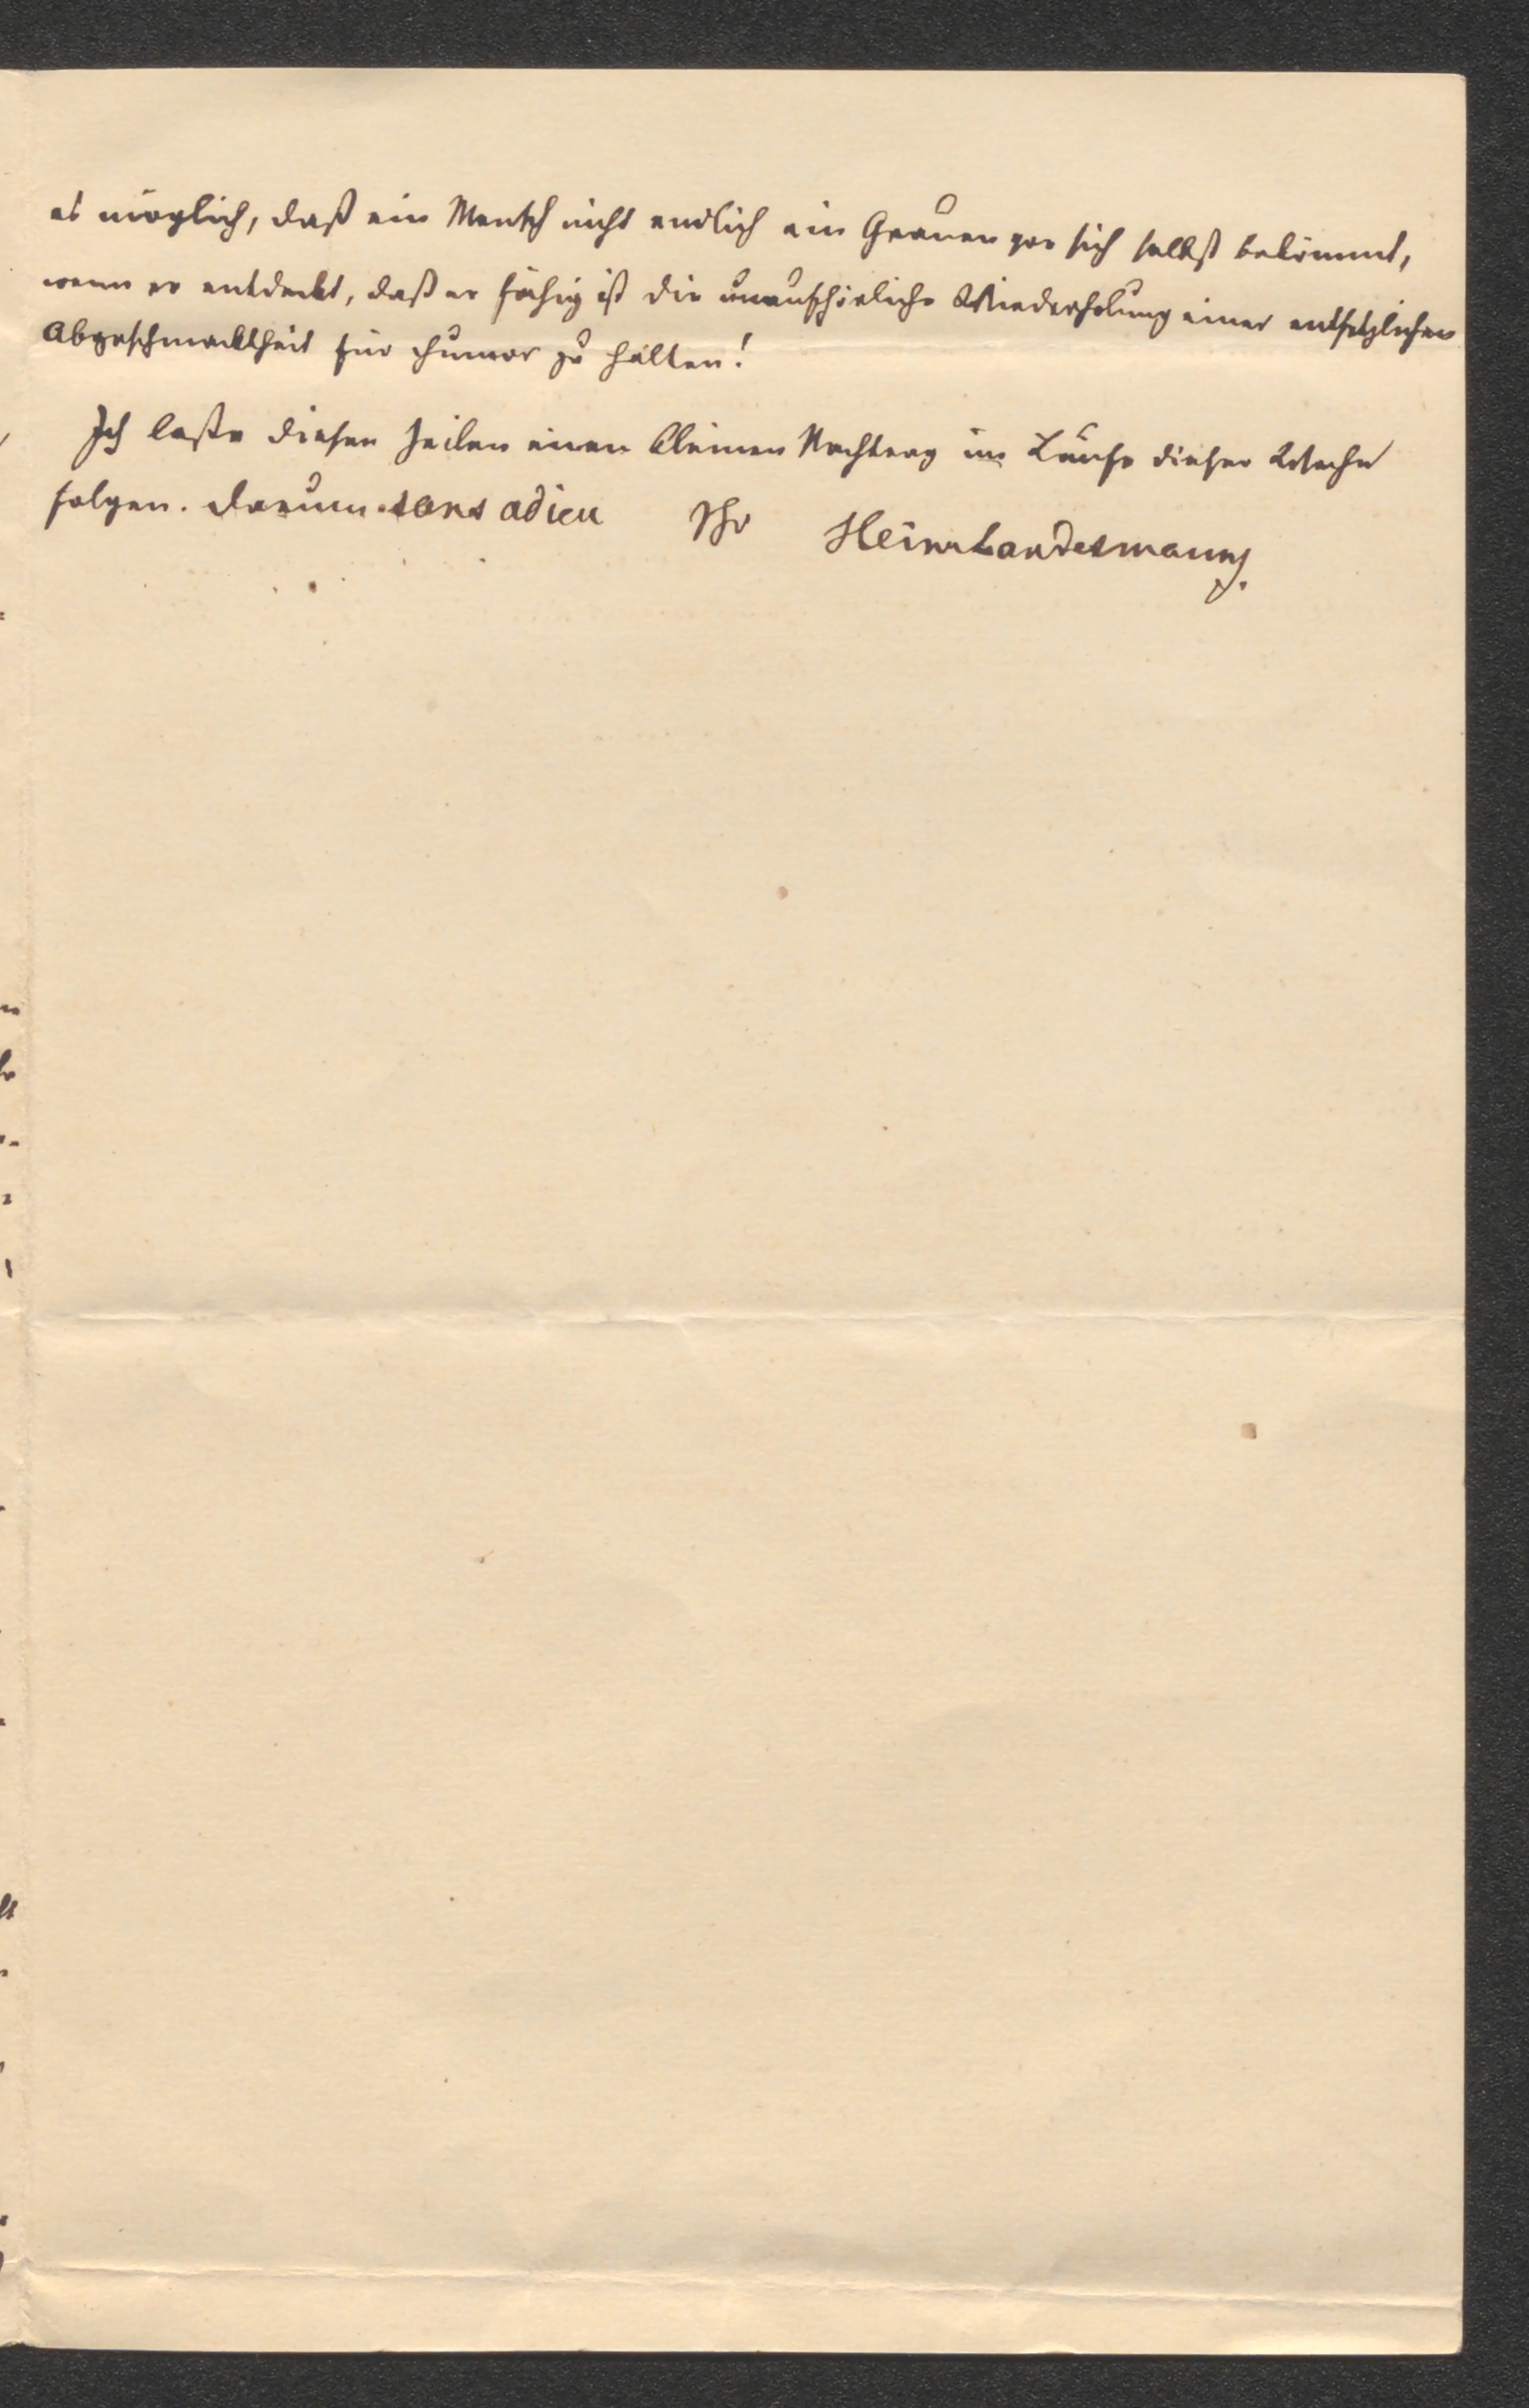 es möglich, daß ein Mensch nicht endlich ein Grauen vor sich selbst bekömmt,
wenn er entdeckt, daß er fähig ist die unaufhörliche Wiederholung einer entsetzlichen
Abgeschmacktheit für Humor zu halten!
Ich laße diesen Zeilen einen kleinen Nachtrag im Laufe dieser Woche
folgen. Darum sans adieu Ihr Heinr Landesmann